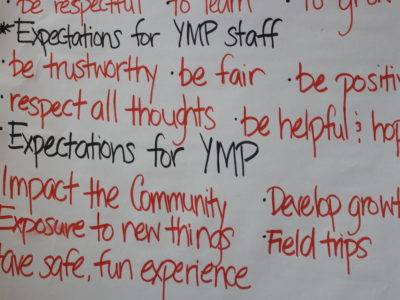 · be respectful · to learn · to grow
*Expectations for YMP staff
· be trustworthy · be fair · be positiv
· respect all thoughts · be helpful & hop
Expectations for YMP
Impact the Community · Develop growt
Exposure to new things · Field trips
ave safe, fun experience